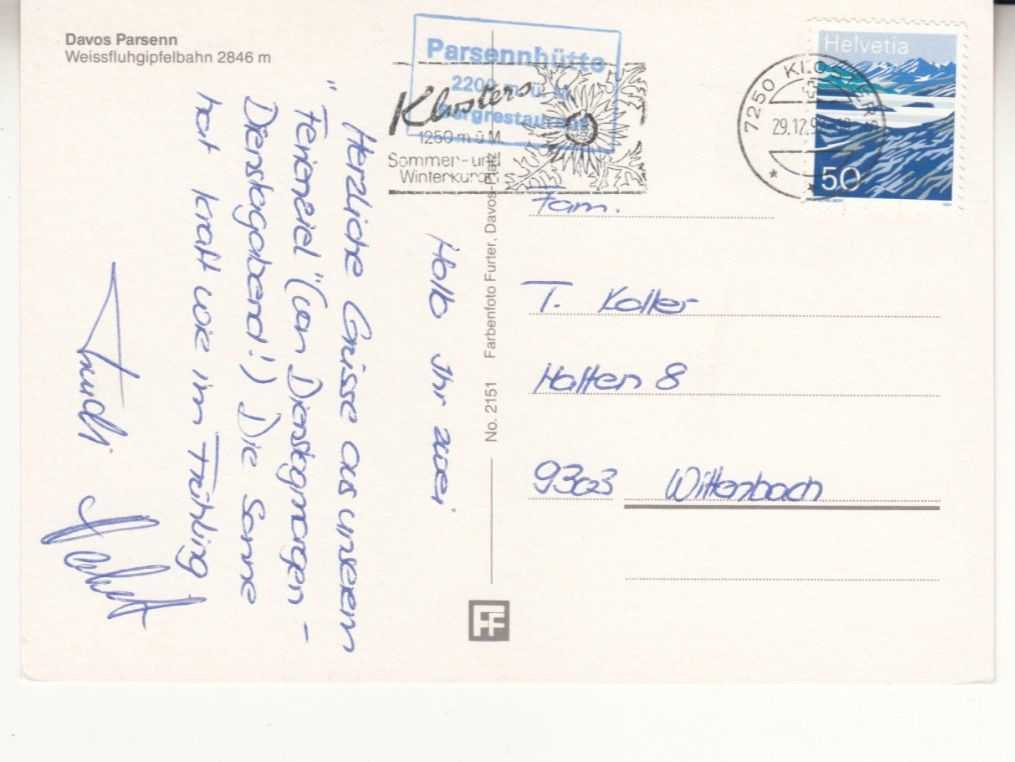 Davos Parsenn
Weissfluhgipfelbahn 2846 m
Parsennhütte
2200 m ü. M.
Bergrestaurant
Klosters
1250 m ü M
Sommer- und
Winterkurort
7250 KLOSTERS
29.12.9
Helvetia
50
Hallo Ihr zwei
Herzliche Grüsse aus unserem
"Ferienziel" (von Dienstagmorgen -
Dienstagabend!) Die Sonne
hat Kraft wie im Frühling
Trudi
No. 2151 Farbenfoto Furter, Davos-Platz
Fam.
T. Koller
Halten 8
9303 Wittenbach
FF